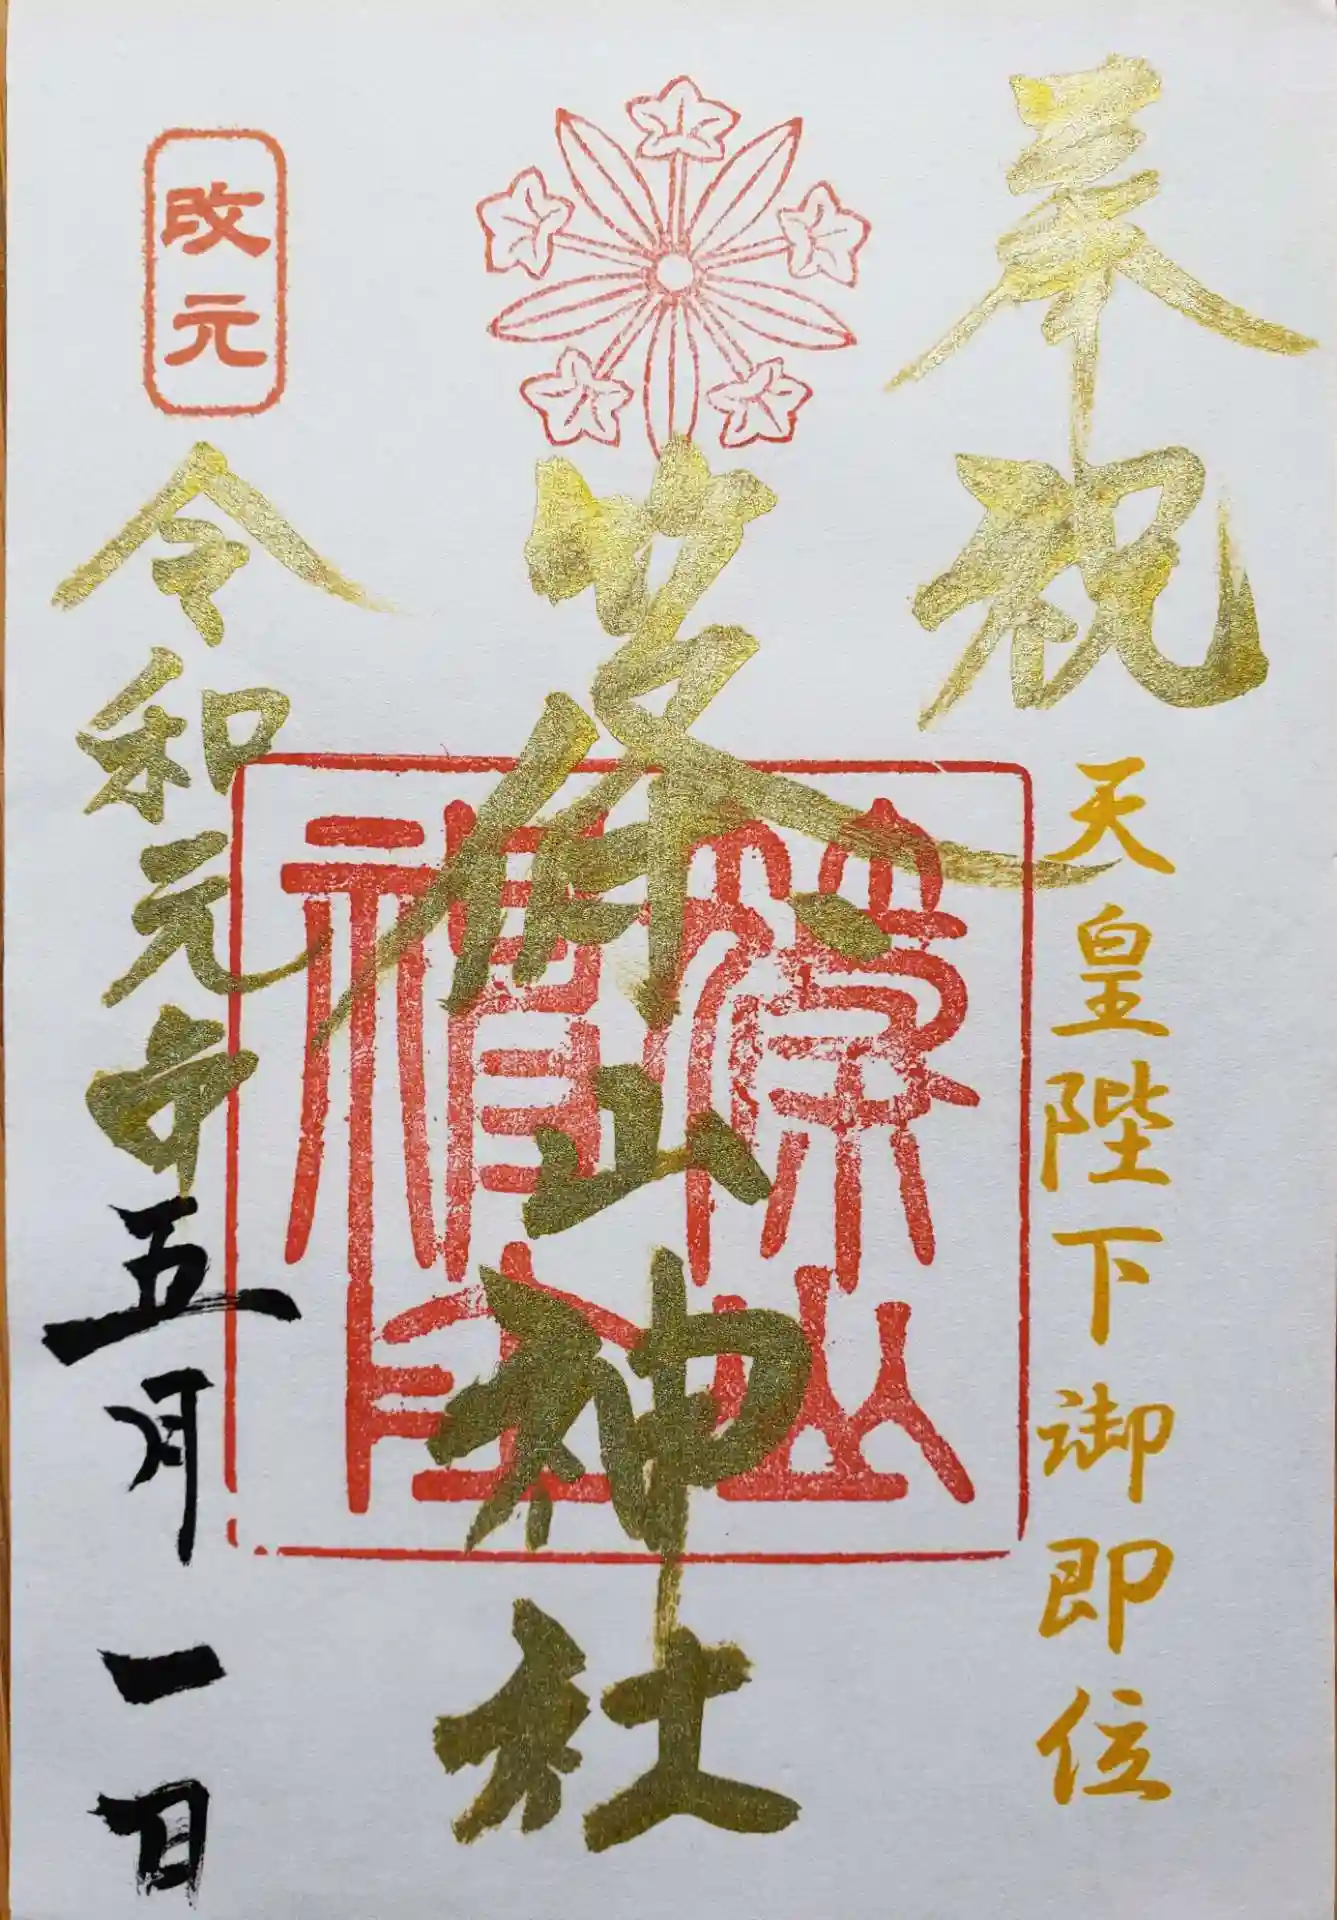 奉祝
天皇陛下御即位
篠山神社
篠山
改元
令和元年五月一日